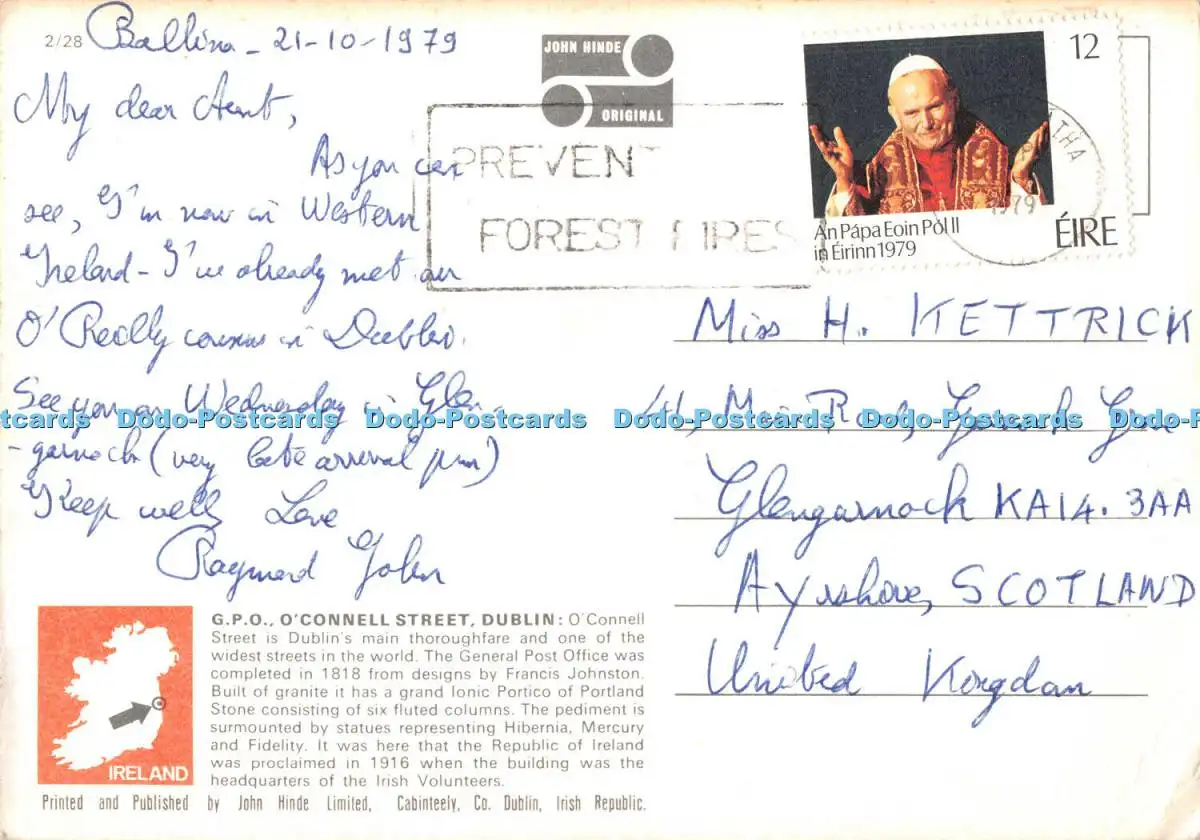 2/28 Ballina - 21-10-1979
My dear Aunt,
As you can
see, I'm now in Western
Ireland - I've already met our
O'Reilly cousins in Dublin.
See you on Wednesday in Glen
-garnock (very late arrival pm)
Keep well, Love
Raymond John
JOHN HINDE
ORIGINAL
PREVENT
FOREST FIRES
12
ATHA
1979
An Pápa Eoin Pól II
in Éirinn 1979
ÉIRE
Miss H. KETTRICK
Glengarnock KA14. 3AA
Ayrshire, SCOTLAND
United Kingdom
Dodo-Postcards Dodo-Postcards Dodo-Postcards Dodo-Postcards
IRELAND
G.P.O., O'CONNELL STREET, DUBLIN: O'Connell
Street is Dublin's main thoroughfare and one of the
widest streets in the world. The General Post Office was
completed in 1818 from designs by Francis Johnston.
Built of granite it has a grand Ionic Portico of Portland
Stone consisting of six fluted columns. The pediment is
surmounted by statues representing Hibernia, Mercury
and Fidelity. It was here that the Republic of Ireland
was proclaimed in 1916 when the building was the
headquarters of the Irish Volunteers.
Printed and Published by John Hinde Limited, Cabinteely, Co. Dublin, Irish Republic.